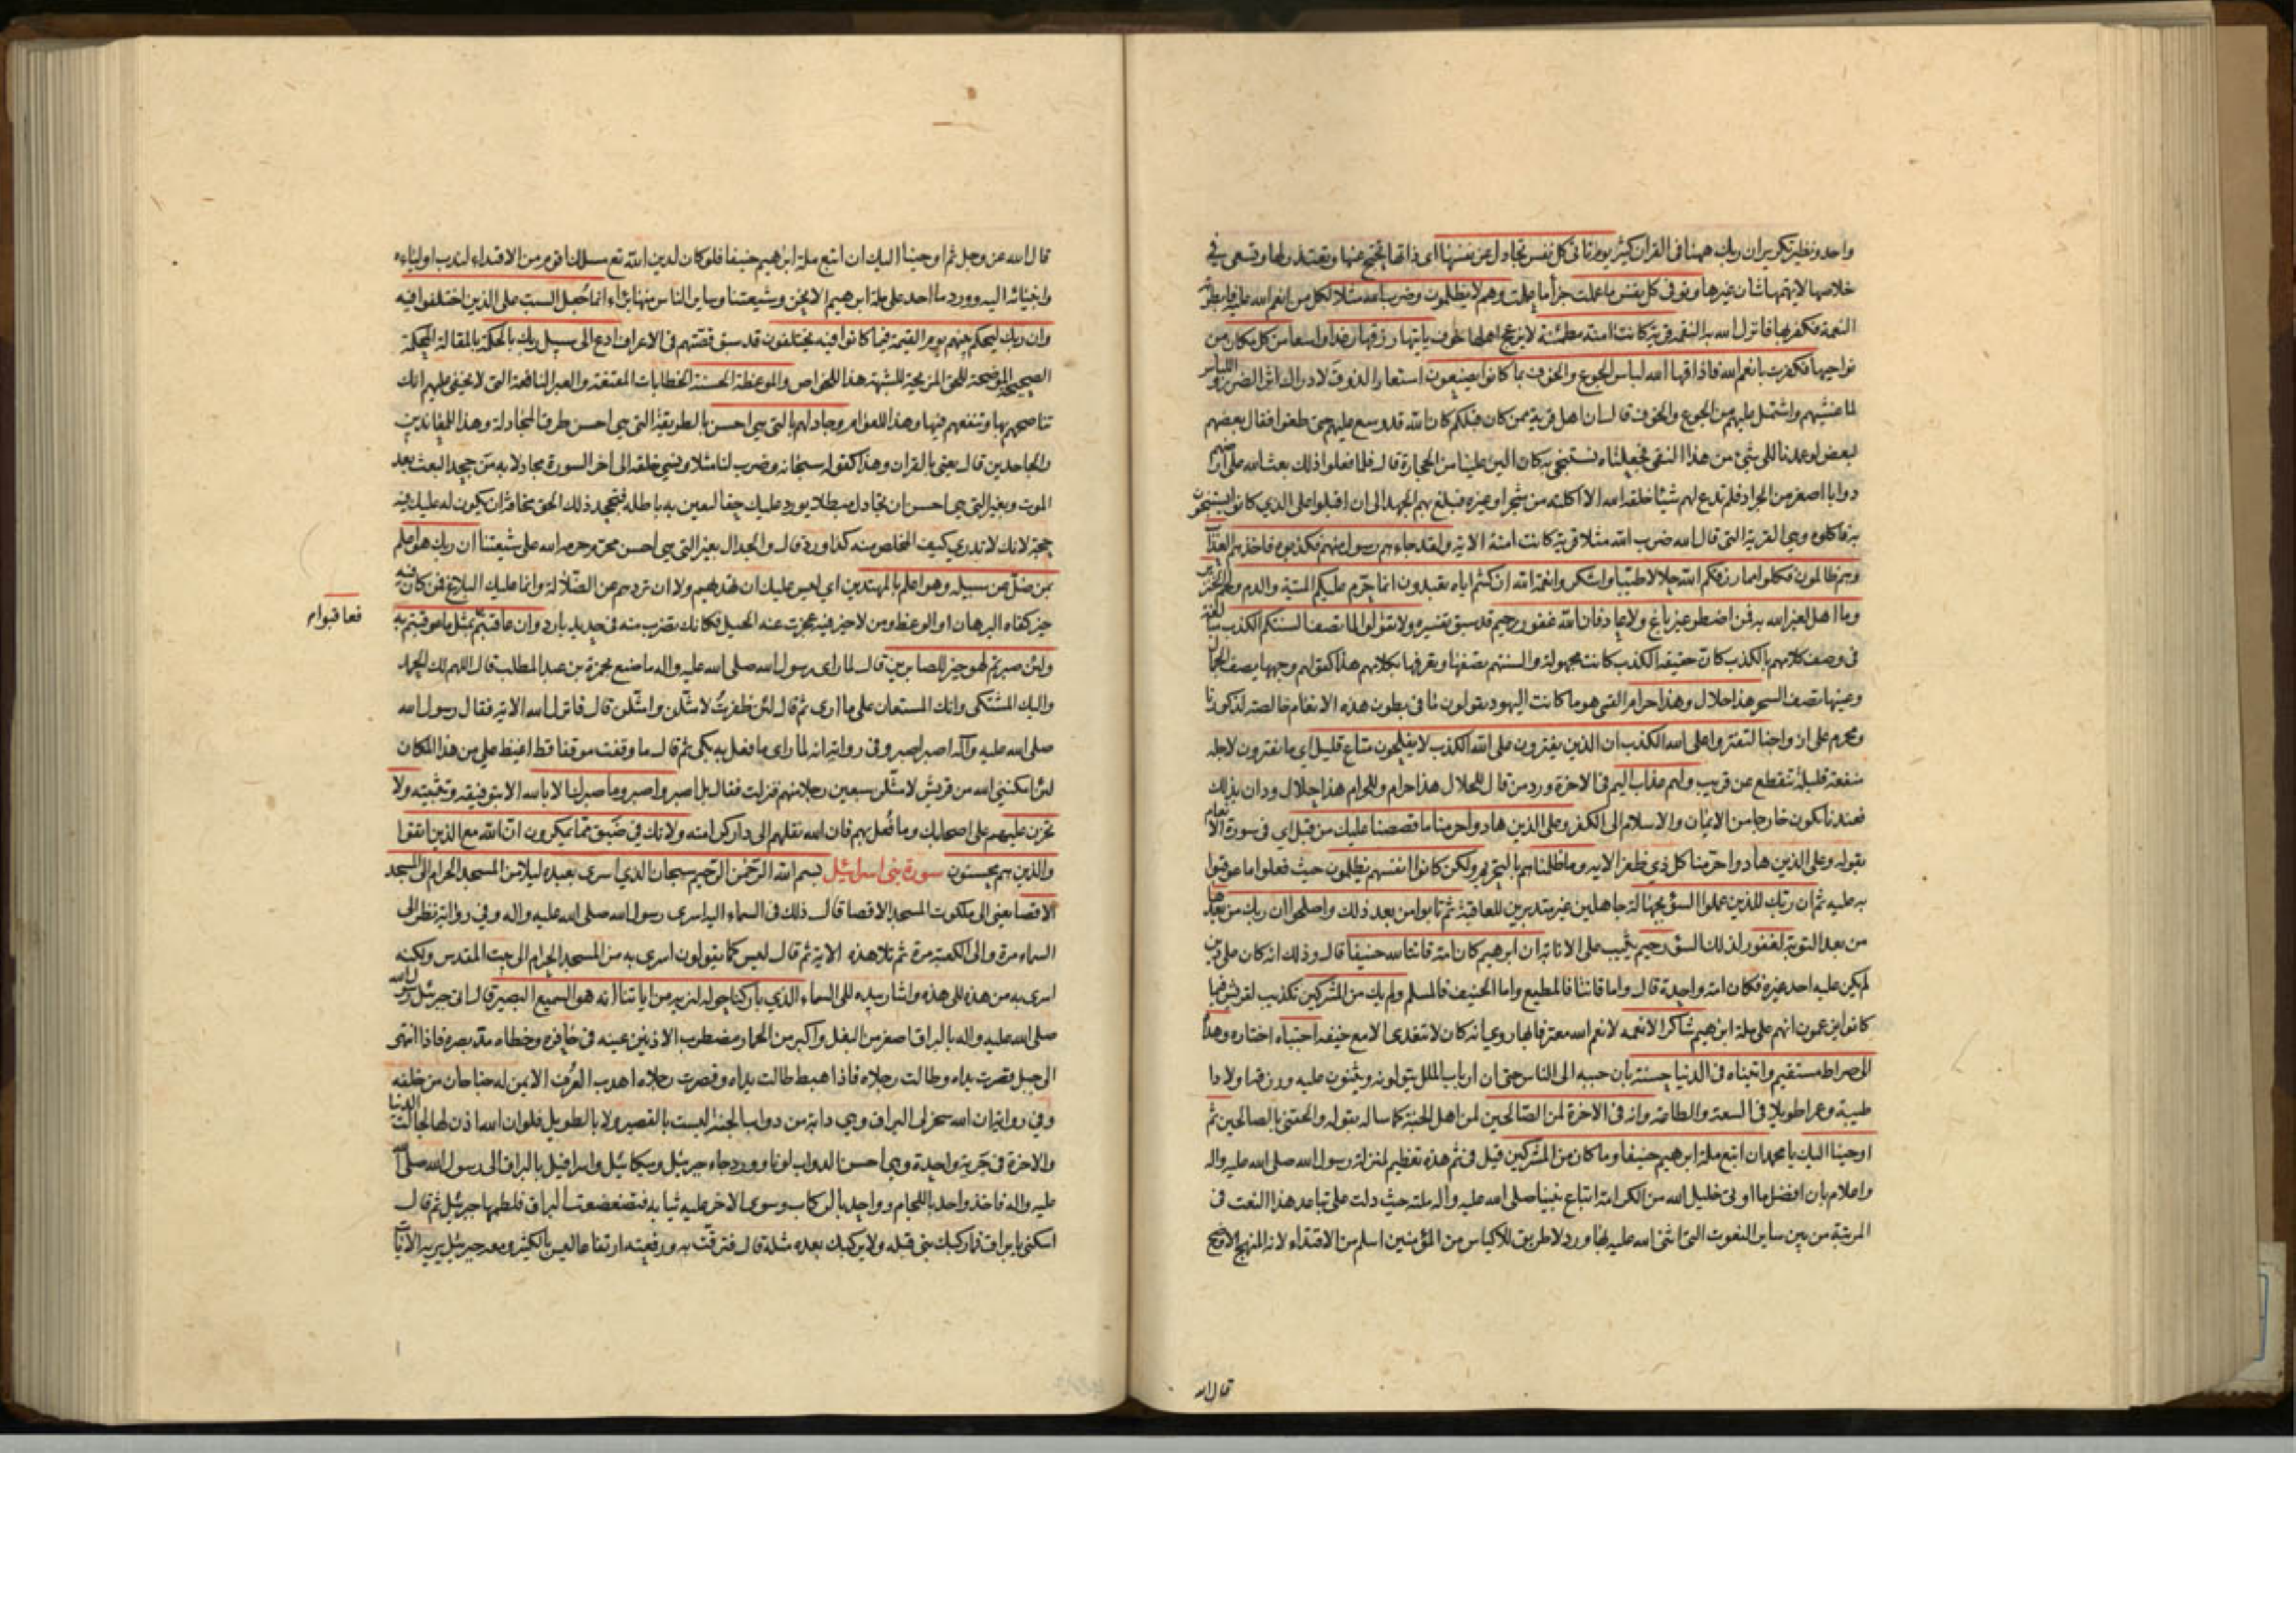 واحد ونظيرتكرير ان ربك ههنا في القران كثير يوم تاتى كل نفس تجادل عن نفسها اى ذاتها يحتج عنها وتعتذر لها وتسعى في
خلاصها لا يهمها شان غيرها وتوفى كل نفس ما عملت جزأ ما عملت وهم لا يظلمون وضرب الله مثلا لكل من انعم الله عليه فابطرته
النعمة فكفر بها فانزل الله به النقمه قرية كانت امنة مطمئنة لا يزعج اهلها خوف ياتيها رزقها رغدا واسعا من كل مكان من
نواحيها فكفرت بانعم الله فاذاقها الله لباس الجوع والخوف بما كانوا يصنعون استعار الذوق لادراك اثر الضرر واللباس
لما غشيهم واشتمل عليهم من الجوع والخوف قال ان اهل قرية ممن كان قبلكم كان الله قد وسع عليهم حتى طغوا فقال بعضهم
لبعض لو عمدنا الى شئ من هذا النقى فجعلناه نستنجى به كان الين علينا من الحجارة قال فلما فعلوا ذلك بعث الله على ارضهم
دوابا اصغر من الجراد فلم تدع لهم شيئا خلقه الله الا اكلته من شجر او غيره فبلغ بهم الجهد الى ان اقبلوا على الذي كانوا يستنجون
به فاكلوه وهى القرية التى قال الله ضرب الله مثلا قرية كانت امنة الاية ولقد جاءهم رسول منهم فكذبوه فاخذهم العذاب
وهم ظالمون فكلوا مما رزقكم الله حلالا طيبا واشكروا نعمة الله ان كنتم اياه تعبدون انما حرم عليكم الميتة والدم ولحم الخنزير
وما اهل لغير الله به فمن اضطر غير باغ ولا عاد فان الله غفور رحيم قد سبق تفسيره ولا تقولوا لما تصف السنتكم الكذب مبالغة
فى وصف كلامهم بالكذب كان حقيقة الكذب كانت مجهولة والسنتهم تصفها وتعرفها بكلامهم هذا كقولهم وجهها يصف الجمال
وعينها تصف السحر هذا حلال وهذا حرام القمى هو ما كانت اليهود يقولون ما فى بطون هذه الانعام خالصة لذكورنا
ومحرم على ازواجنا لتفتروا على الله الكذب ان الذين يفترون على الله الكذب لا يفلحون متاع قليل اى ما يفترون لاجله
منفعة قليلة تنقطع عن قريب ولهم عذاب اليم فى الاخرة ورد من قال للحلال هذا حرام وللحرام هذا حلال ودان بذلك
فعندنا يكون خارجا من الايمان والاسلام الى الكفر وعلى الذين هادوا حرمنا ما قصصنا عليك من قبل اي فى سورة الانعام
بقوله وعلى الذين هادوا حرمنا كل ذي ظفر الاية وما ظلمناهم بالتحريم ولكن كانوا انفسهم يظلمون حيث فعلوا ما عوقبوا
به عليه ثم ان ربك للذين عملوا السؤ بجهالة جاهلين غير متدبرين للعاقبة ثم تابوا من بعد ذلك واصلحوا ان ربك من بعدها
من بعد التوبة لغفور لذلك السؤ رحيم يثيب على الانابة ان ابرهيم كان امة قانتا لله حنيفا قال وذلك انه كان على دين
لم يكن عليه احد غيره فكان امة واحدة قال واما قانتا فالمطيع واما الحنيف فالمسلم ولم يك من المشركين تكذيب لقريش فيما
كانوا يزعمون انهم على ملة ابرهيم شاكرا لانعمه لانعم الله معترفا بها روي انه كان لا يتغدى الا مع ضيفه اجتباه اختاره وهداه
الى صراط مستقيم واتيناه فى الدنيا حسنة بان حببه الى الناس حتى ان ارباب الملل يتولونه ويثنون عليه ورزقه اولادا
طيبة وعمرا طويلا فى السعة والطاعة وانه فى الاخرة لمن الصالحين لمن اهل الجنة كما ساله بقوله والحقنى بالصالحين ثم
اوحينا اليك يا محمد ان اتبع ملة ابرهيم حنيفا وما كان من المشركين قيل فى ثم هذه تعظيم لمنزلة رسول الله صلى الله عليه واله
واعلام بان افضل ما اوتى خليل الله من الكرامة اتباع نبينا صلى الله عليه واله ملته حيث دلت على تباعد هذا النعت فى
المرتبة من بين ساير النعوت التى اثنى الله عليه بها ورد لا طريق للاكياس من المؤمنين اسلم من الاقتداء لانه المنهج الاوضح
قال الله
قال الله عز وجل ثم اوحينا اليك ان اتبع ملة ابرهيم حنيفا فلو كان لدين الله تع مسلك اقوم من الاقتداء لندب اولياءه
وانبيائه اليه وورد ما احد على ملة ابرهيم الا نحن وشيعتنا وساير الناس منها براء انما جعل السبت على الذين اختلفوا فيه
وان ربك ليحكم بينهم يوم القيمة فيما كانوا فيه يختلفون قد سبق قصتهم فى الاعراف ادع الى سبيل ربك بالحكمة بالمقالة المحكمة
الصحيحة الموضحة للحق المزيحة للشبهة هذا للخواص والموعظة الحسنة الخطابات المقنعة والعبر النافعة التى لا يخفى عليهم انك
تناصحهم بها وتنفعهم فيها وهذا للعوام وجادلهم بالتى هى احسن بالطريقة التى هى احسن طرق المجادلة وهذا للمعاندين
والجاحدين قال يعنى بالقران وهذا كقوله سبحانه وضرب لنا مثلا ونسي خلقه الى اخر السورة مجادلا به من جحد البعث بعد
الموت وبغير التى هى احسن ان تجادل مبطلا يورد عليك حقا ليعين به باطله فتجحد ذلك الحق مخافة ان يكون له عليك فيه
حجة لانك لا تدري كيف المخلص منه كذا ورد قال والجدال بغير التى هى احسن محرم حرمه الله على شيعتنا ان ربك هو اعلم
بمن ضل عن سبيله وهو اعلم بالمهتدين اي ليس عليك ان تهديهم ولا ان تردهم عن الضلالة وانما عليك البلاغ فمن كان فيه
خير كفاه البرهان او الوعظ ومن لا خير فيه عجزت عنه الحيل فكانك تضرب منه فى حديد بارد وان عاقبتم بمثل ما عوقبتم به
فعاقبوا م
ولئن صبرتم لهو خير للصابرين قال لما راى رسول الله صلى الله عليه واله ما صنع بحمزة بن عبد المطلب قال اللهم لك الحمد
واليك المشتكى وانك المستعان على ما ارى ثم قال لئن ظفرت لامثلن وامثلن قال فانزل الله الاية فقال رسول الله
صلى الله عليه وآله اصبر اصبر وفى رواية انه لما راى ما فعل به بكى ثم قال ما وقفت موقفا قط اغيظ على من هذا المكان
لئن امكننى الله من قريش لامثلن سبعين رجلا منهم فنزلت فقال بل اصبر واصبر وما صبرك الا بالله الا بتوفيقه وتثبيته ولا
تحزن عليهم على اصحابك وما فعل بهم فان الله نقلهم الى دار كرامته ولا تك في ضيق مما يمكرون ان الله مع الذين اتقوا
والذين هم محسنون سورة بنى اسرائيل بسم الله الرحمن الرحيم سبحان الذي اسرى بعبده ليلا من المسجد الحرام الى المسجد
الاقصا يعنى الى ملكوت المسجد الاقصا قال ذلك فى السماء اليه اسرى رسول الله صلى الله عليه واله وفي رواية نظر الى
السماء مرة والى الكعبة مرة ثم تلا هذه الاية ثم قال ليس كما يقولون اسرى به من المسجد الحرام الى بيت المقدس ولكنه
اسرى به من هذه الى هذه واشار بيده الى السماء الذي باركنا حوله لنريه من اياتنا انه هو السميع البصير قال اتى جبرئيل رسول الله
صلى الله عليه واله بالبراق اصغر من البغل واكبر من الحمار مضطرب الاذنين عينه فى حافره وخطاه مد بصره فاذا انتهى
الى جبل قصرت يداه وطالت رجلاه فاذا هبط طالت يداه وقصرت رجلاه اهدب العرف الايمن له جناحان من خلفه
وفي رواية ان الله سخر لى البراق وهى دابة من دواب الجنة ليست بالقصير ولا بالطويل فلو ان الله اذن لها لجالت الدنيا
والاخرة فى جرية واحدة وهى احسن الدواب لونا وورد جاء جبرئيل وميكائيل واسرافيل بالبراق الى رسول الله صلى الله
عليه واله فاخذ واحد باللجام وواحد بالركاب وسوى الاخر عليه ثيابه فتضعضعت البراق فلطمها جبرئيل ثم قال
اسكنى يا براق فما ركبك نبى قبله ولا يركبك بعده مثله قال فترقت به ورفعته ارتفاعا ليس بالكثير ومعه جبرئيل يريه الايات